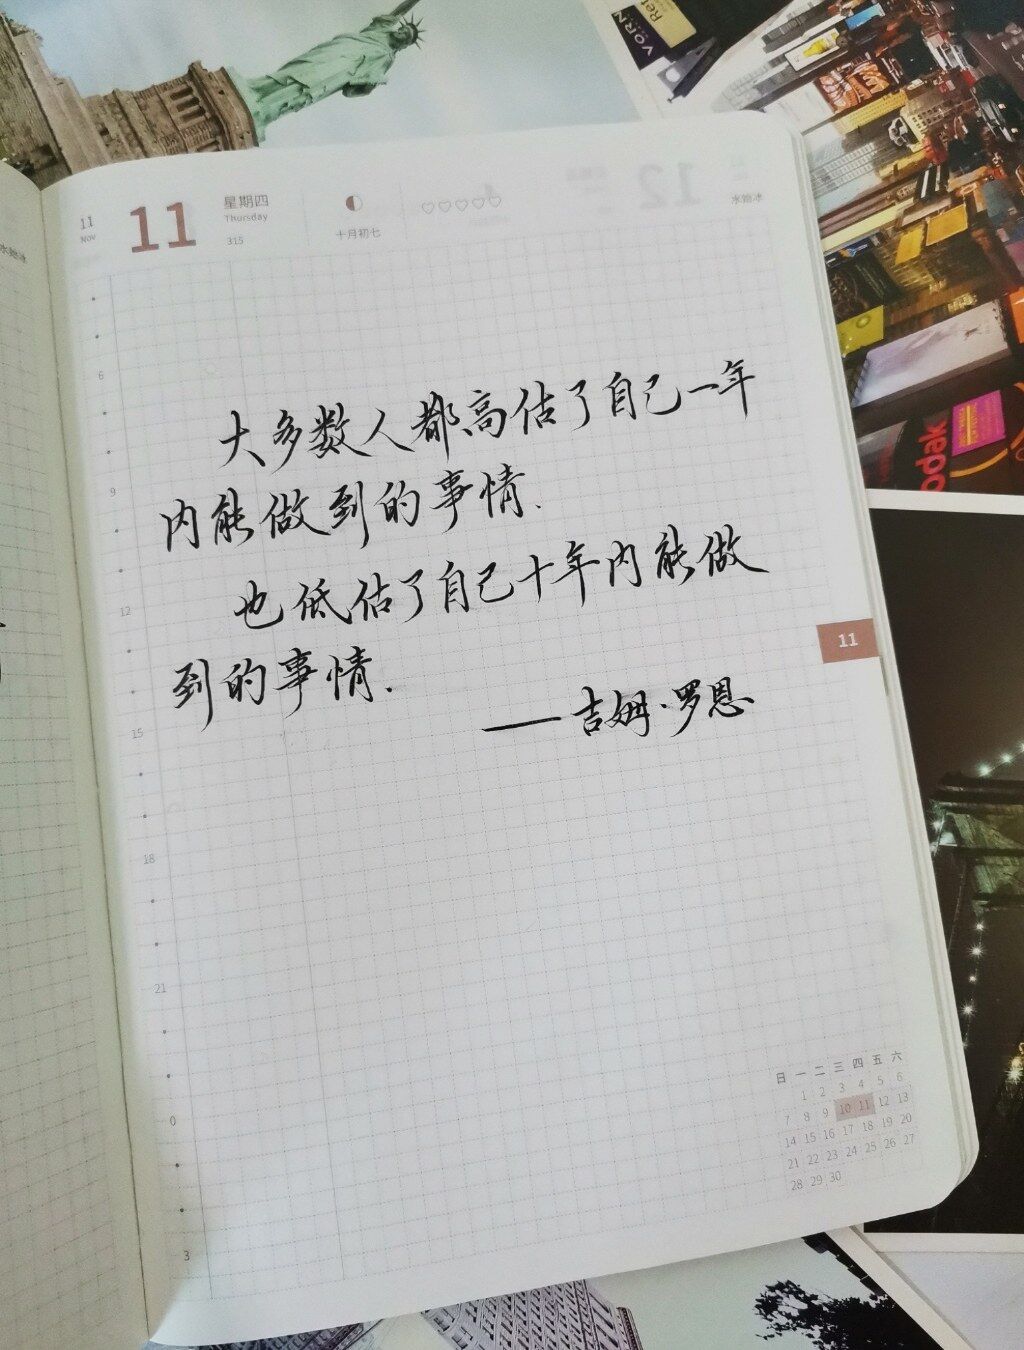 11
Nov
11
星期四
Thursday
315
十月初七
水始冰
大多数人都高估了自己一年
内能做到的事情.
也低估了自己十年内能做
到的事情.
——吉姆·罗恩
6
9
12
15
18
21
0
3
11
日 一 二 三 四 五 六
1 2 3 4 5 6
7 8 9 10 11 12 13
14 15 16 17 18 19 20
21 22 23 24 25 26 27
28 29 30